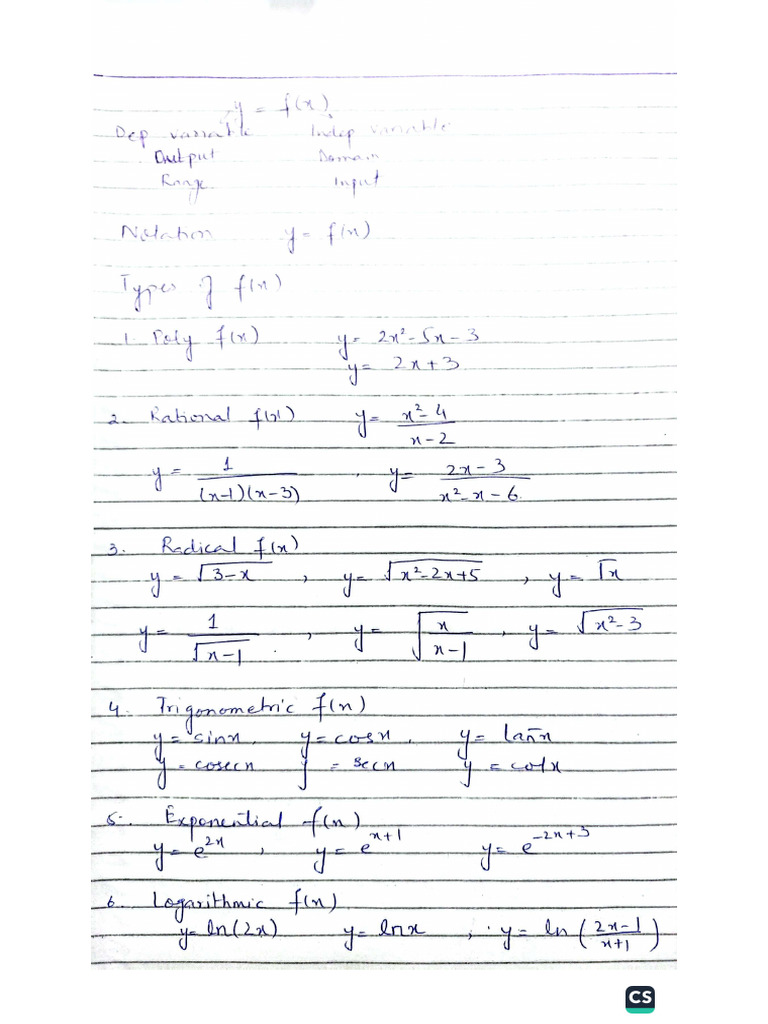 y = f(x)
Dep variable Indep variable
Output Domain
Range Input
Notation y = f(x)
Types of f(x)
1. Poly f(x) y = 2x² - 5x - 3
y = 2x + 3
2. Rational f(x) y = (x² - 4)/(x - 2)
y = 1/((x-1)(x-3)) , y = (2x - 3)/(x² - x - 6)
3. Radical f(x)
y = √(3 - x) , y = √(x² - 2x + 5) , y = √x
y = 1/√(x - 1) , y = √(x/(x - 1)) , y = √(x² - 3)
4. Trigonometric f(x)
y = sinx , y = cosx , y = tanx
y = cosecx y = secx y = cotx
5. Exponential f(x)
y = e^(2x) , y = e^(x+1) y = e^(-2x+3)
6. Logarithmic f(x)
y = ln(2x) y = lnx , y = ln((2x - 1)/(x + 1))
CS